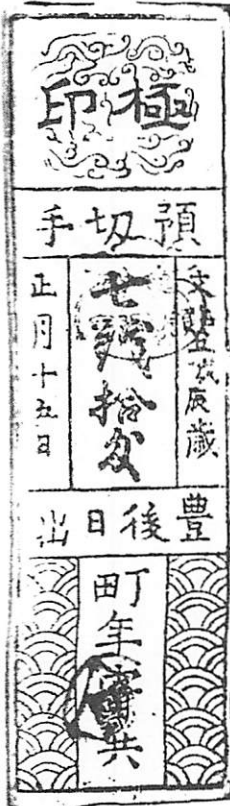 極印
預切手
文化五戊辰歳
七錢拾匁
正月十五日
豊後日出
町年寄共